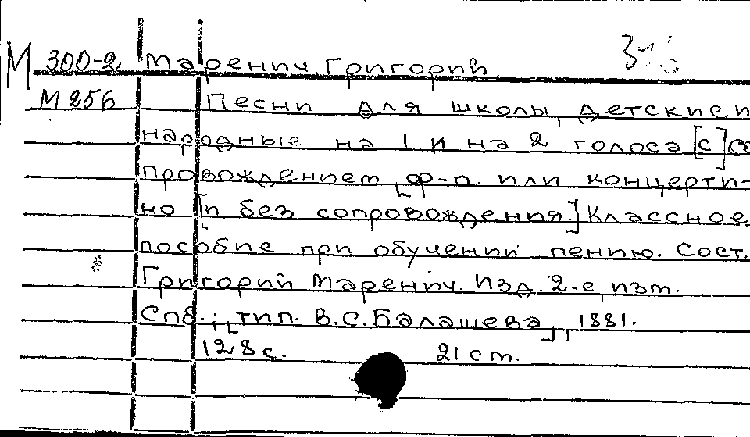 М 300-2 Маренич Григорий
М256 Песни для школы, детские и
народные на 1 и на 2 голоса [с] со
провождением [ф-п. или концерти-
но [и без сопровождения.] Классное
пособие при обучении пению. Сост.
Григорий Маренич. Изд. 2-е, изм.
Спб., [тип. В.С. Балашева], 1881.
128 с. 21 см.